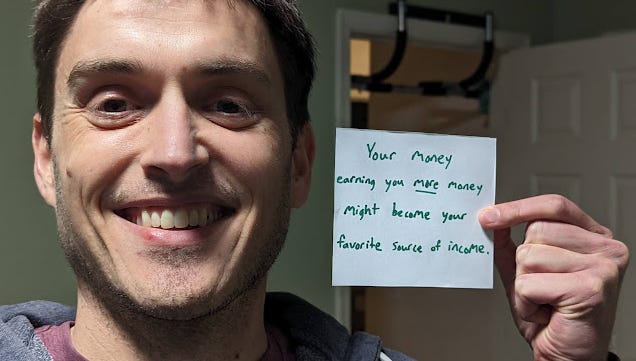 Your money
earning you more money
might become your
favorite source of income.